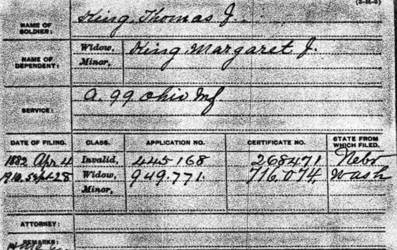 (3-216)
NAME OF SOLDIER: King, Thomas J.
NAME OF DEPENDENT: Widow, King, Margaret J.
Minor,
SERVICE: A. 99 Ohio Inf.
DATE OF FILING. CLASS. APPLICATION NO. CERTIFICATE NO. STATE FROM WHICH FILED.
1882 Apr. 4 Invalid, 445168 268471 Nebr
1910. Sept. 28 Widow, 949.771. 716,074 Wash
Minor,
ATTORNEY:
REMARKS: